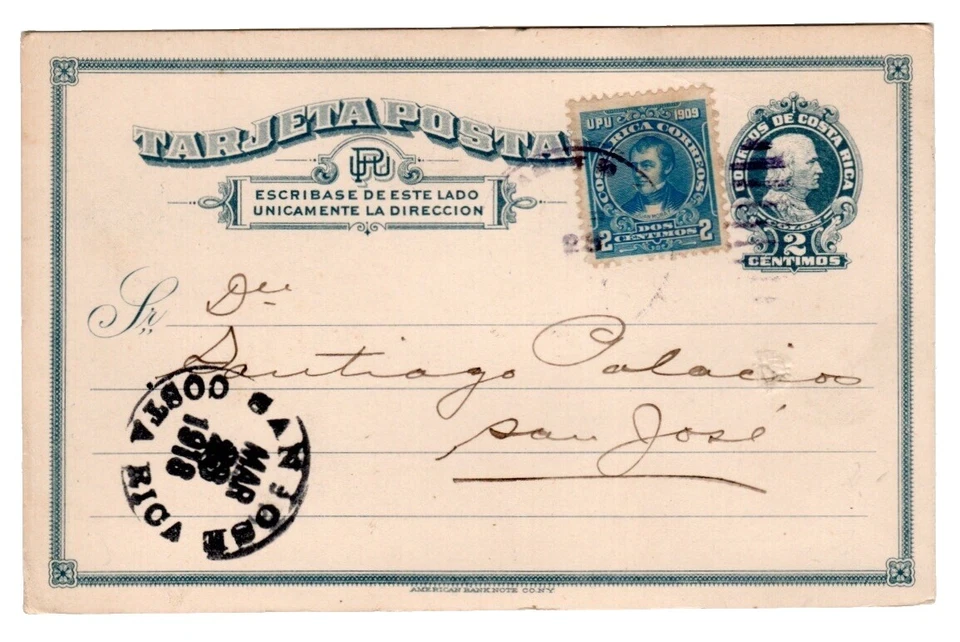 TARJETA POSTAL
UPU
ESCRIBASE DE ESTE LADO
UNICAMENTE LA DIRECCION
UPU 1909
COSTA RICA CORREOS
2 DOS CENTIMOS 2
CORREOS DE COSTA RICA
COLON
2
CENTIMOS
29
Sr,,
Santiago Palacios
San José
SAN JOSE
COSTA RICA
MAR
1918
AMERICAN BANK NOTE CO. N.Y.